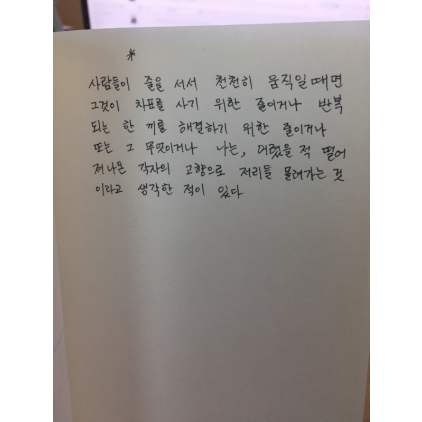 *
사람들이 줄을 서서 천천히 움직일 때면
그것이 차표를 사기 위한 줄이거나 반복
되는 한 끼를 해결하기 위한 줄이거나
또는 그 무엇이거나 나는, 어렸을 적 떨어
져나온 각자의 고향으로 저리들 몰려가는 것
이라고 생각한 적이 있다